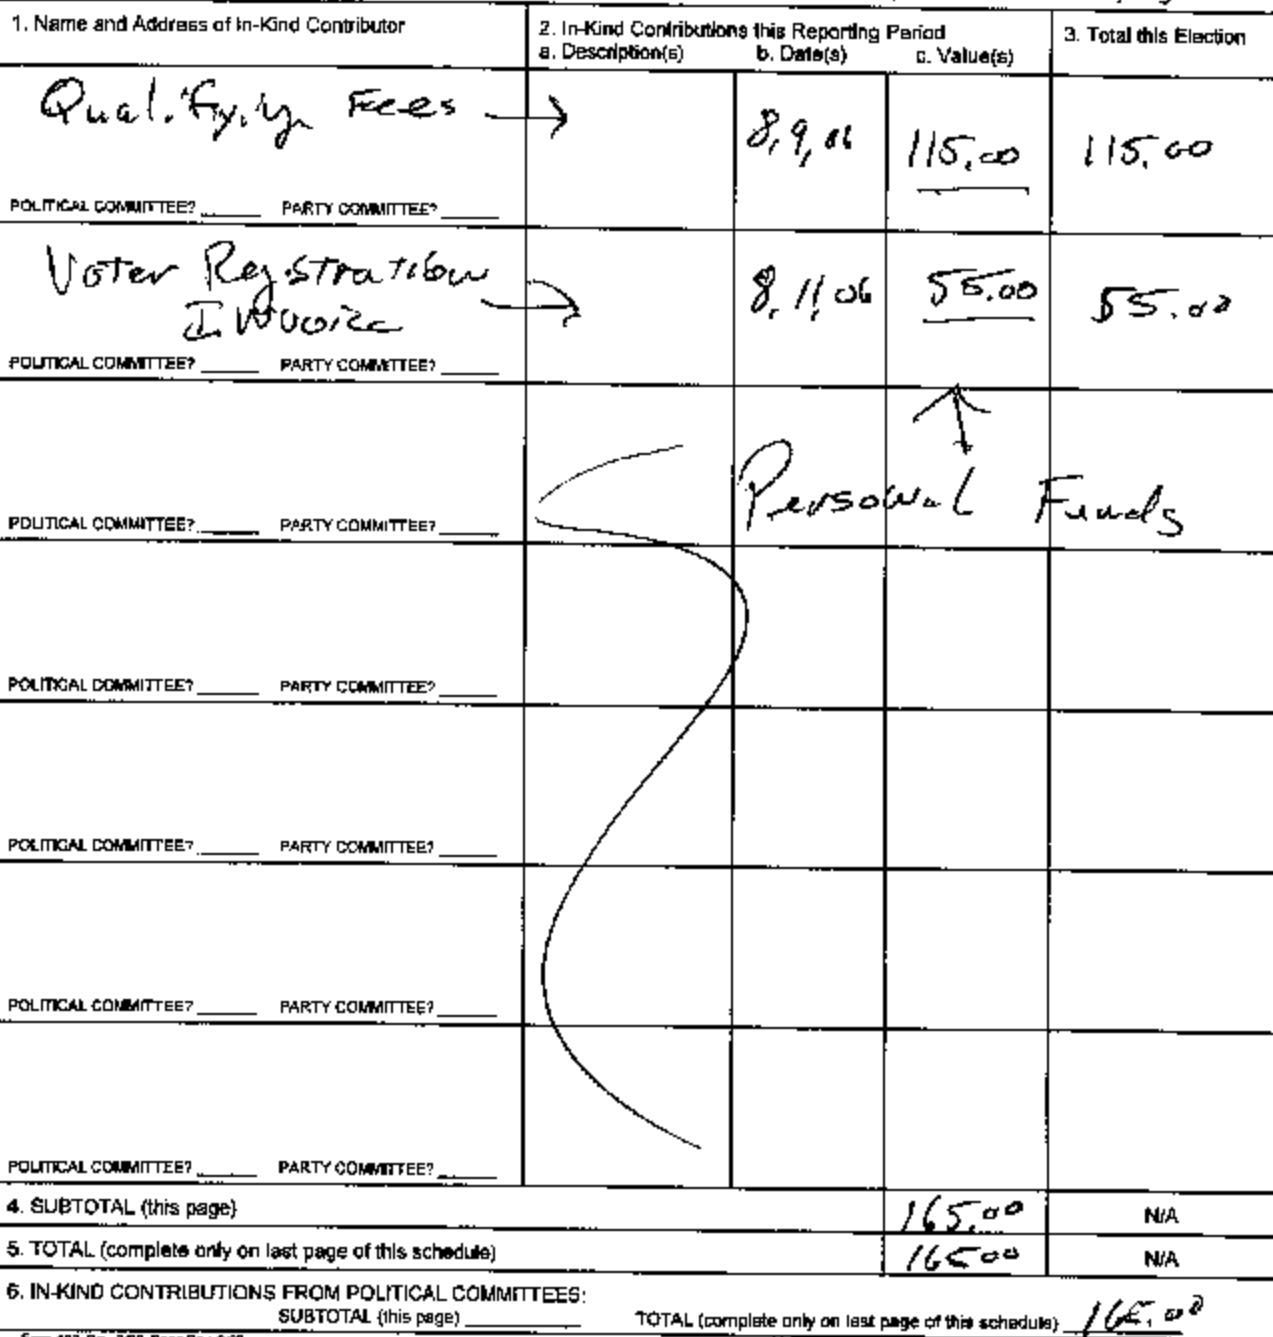 1. Name and Address of In-Kind Contributor
2. In-Kind Contributions this Reporting Period
a. Description(s) b. Date(s) c. Value(s)
3. Total this Election
Qualifying Fees → 8,9,06 115.00 115.00
POLITICAL COMMITTEE? ______ PARTY COMMITTEE? ______
Voter Registration
Invoice → 8,11,06 55.00 55.00
POLITICAL COMMITTEE? ______ PARTY COMMITTEE? ______
Personal Funds
POLITICAL COMMITTEE? ______ PARTY COMMITTEE? ______
POLITICAL COMMITTEE? ______ PARTY COMMITTEE? ______
POLITICAL COMMITTEE? ______ PARTY COMMITTEE? ______
POLITICAL COMMITTEE? ______ PARTY COMMITTEE? ______
POLITICAL COMMITTEE? ______ PARTY COMMITTEE? ______
4. SUBTOTAL (this page) 165.00 N/A
5. TOTAL (complete only on last page of this schedule) 165 00 N/A
6. IN-KIND CONTRIBUTIONS FROM POLITICAL COMMITTEES:
SUBTOTAL (this page) ______ TOTAL (complete only on last page of this schedule) 165.00